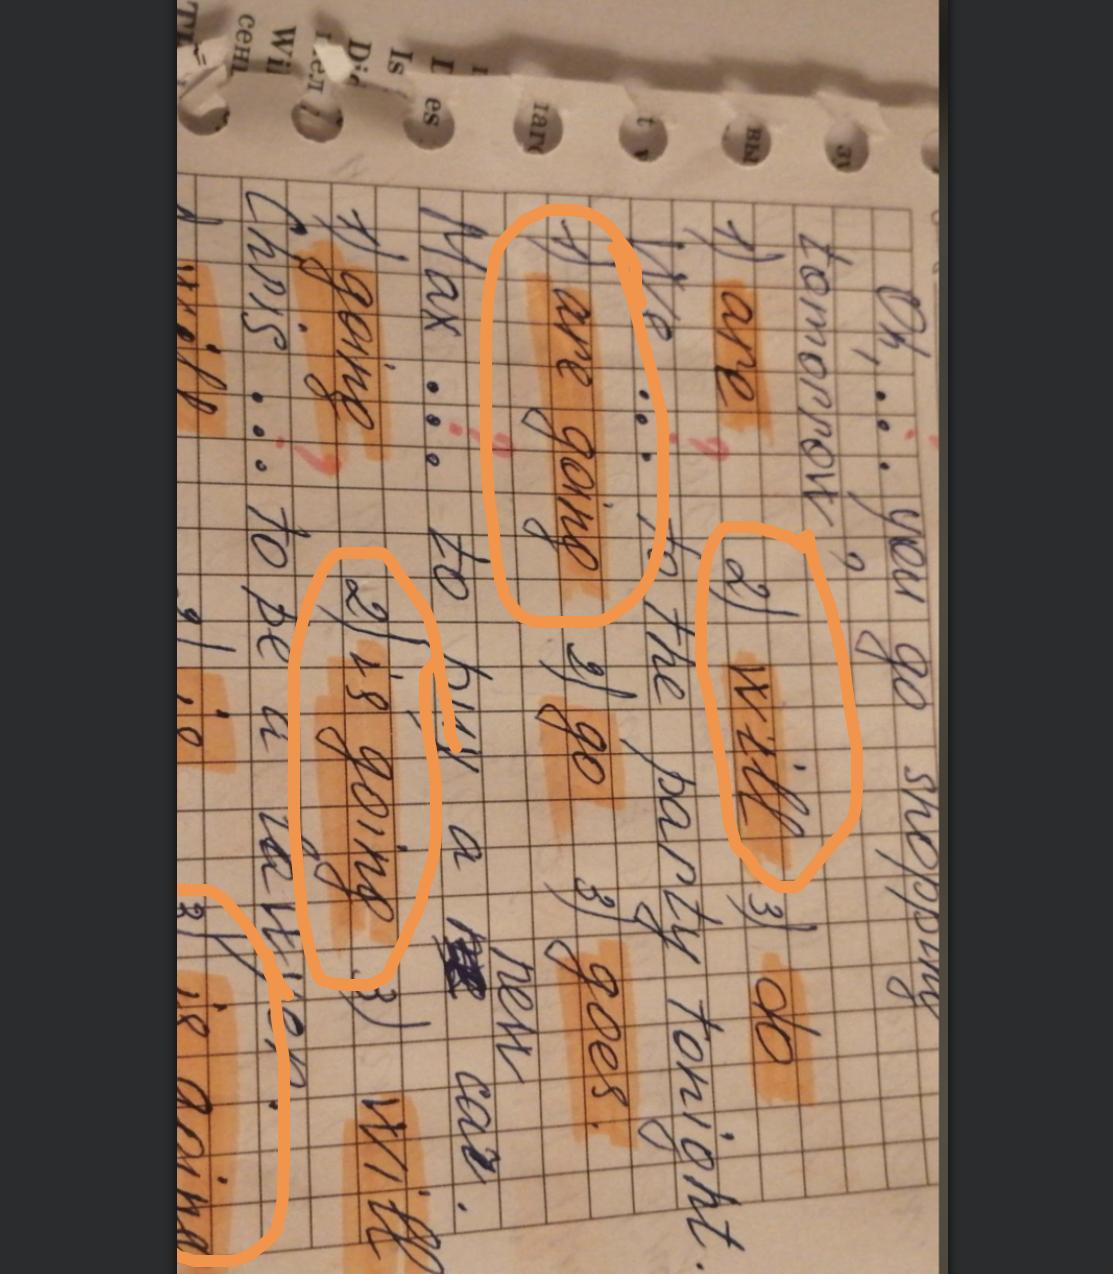 Oh, ... you go shopping
tomorrow ?
1) are 2) will 3) do
We ... to the party tonight.
1) are going 2) go 3) goes.
Max ... to buy a new car.
1) going 2) is going 3) will
Chris ... to be a
1) will 2) is 3) is going